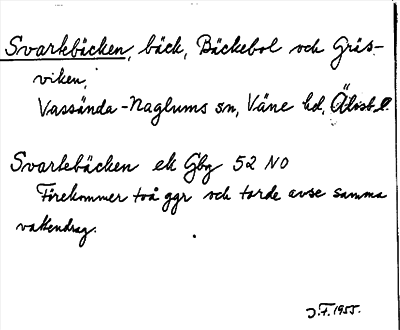 Svarkbäcken, bäck, Bäckebol och Gräs-
viken,
Vassända-Naglums sn, Väne hd, Älvsb.l.
Svartebäcken ek Gbg 52 NO
Förekommer två ggr och torde avse samma
vattendrag.
J.F. 1955.